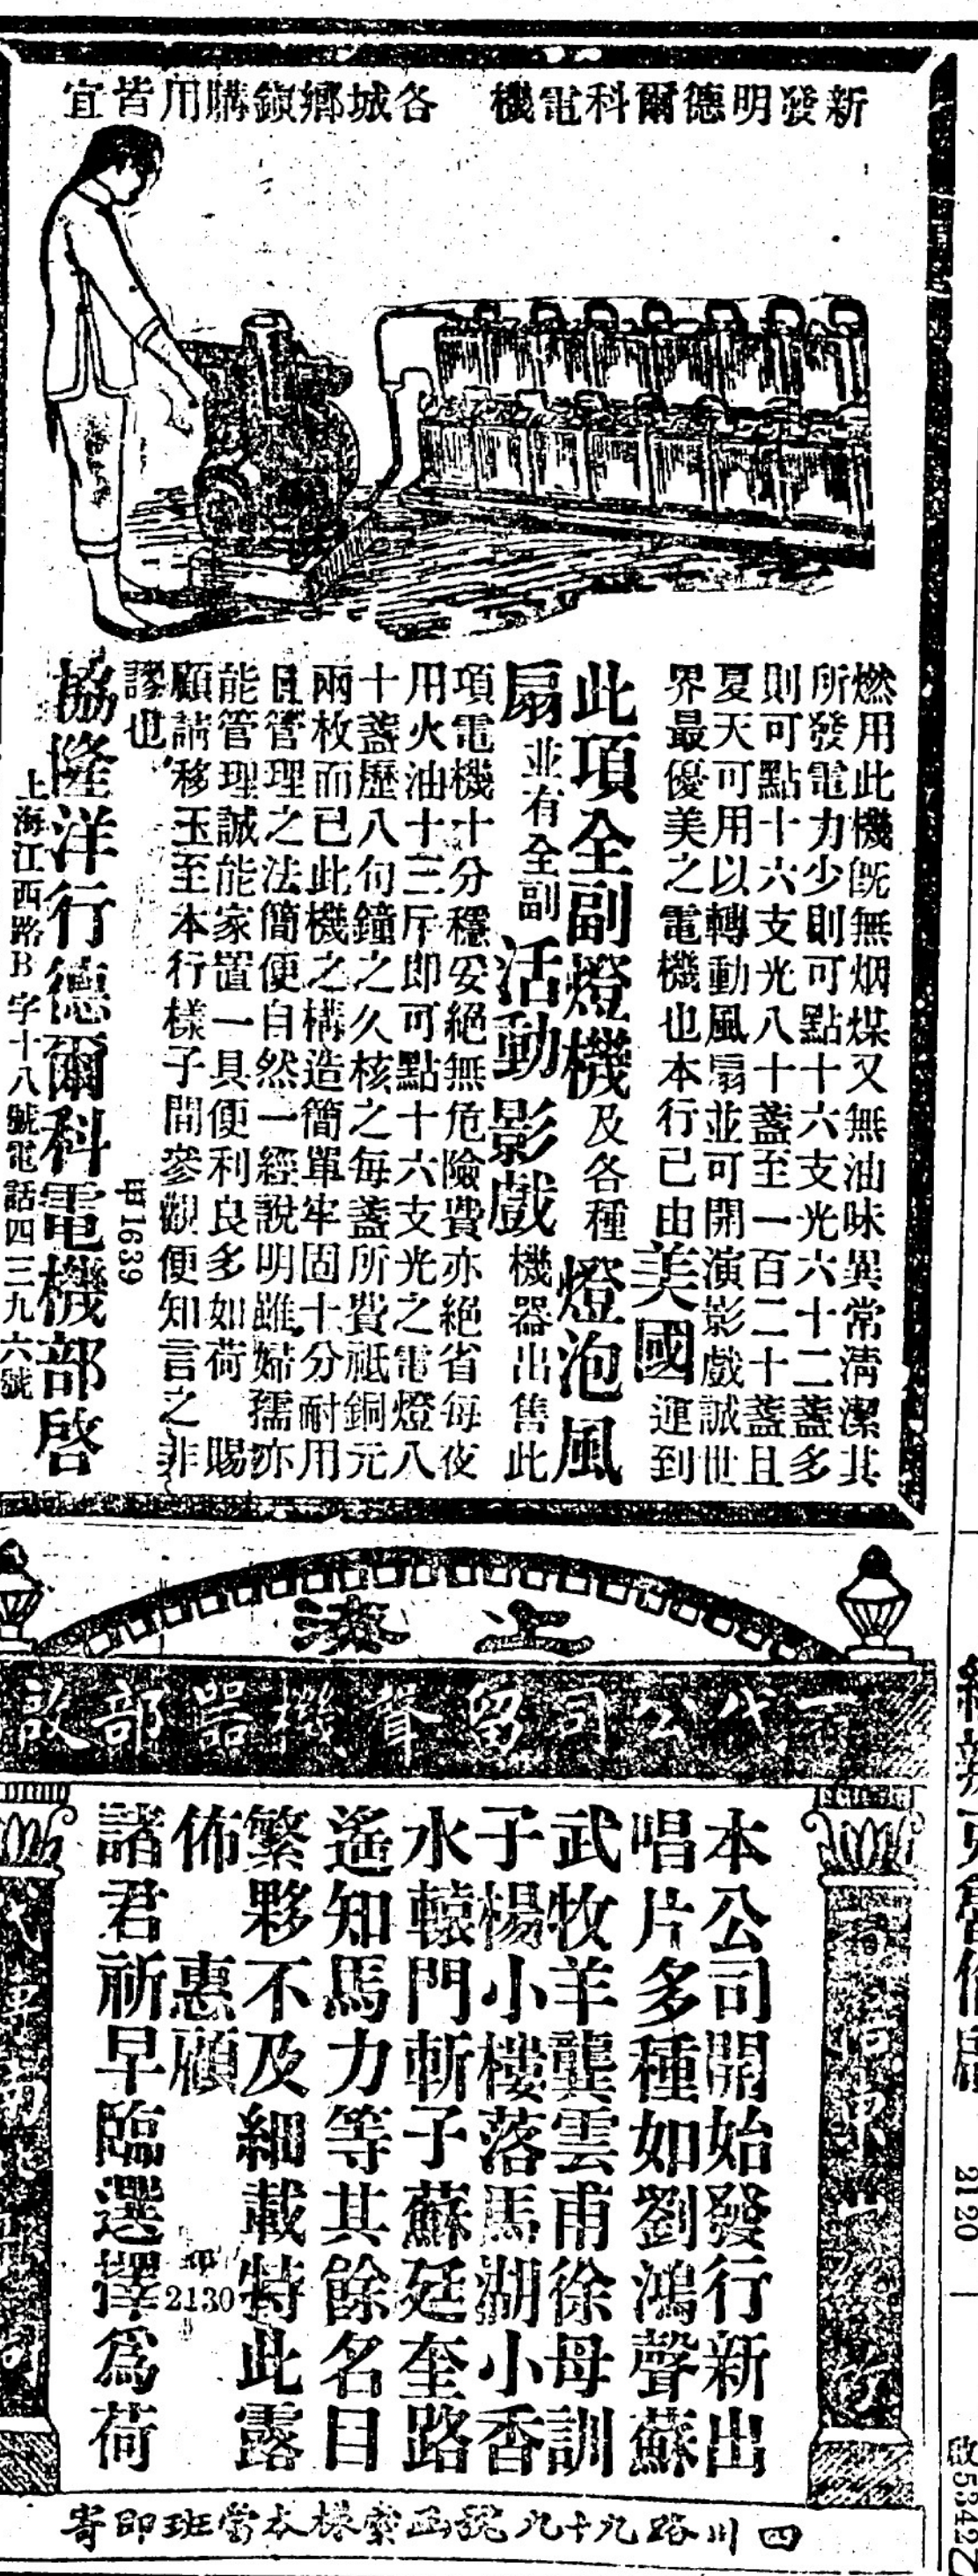 新發明德爾科電機　各城鄉鎮購用皆宜
燃用此機既無烟煤又無油味異常清潔其
所發電力少則可點十六支光六十二盞多
則可點十六支光八十盞至一百二十盞且
夏天可用以轉動風扇並可開演影戲誠世
界最優美之電機也本行已由美國運到
此項全副燈機及各種燈泡風
扇並有全副活動影戲機器出售此
項電機十分穩妥絕無危險費亦絕省每夜
用火油十三斤即可點十六支光之電燈八
十盞歷八句鐘之久核之每盞所費祗銅元
兩枚而已此機之構造簡單牢固十分耐用
且管理之法簡便自然一經說明雖婦孺亦
能管理誠能家置一具便利良多如荷　賜
顧請移玉至本行樣子間參觀便知言之非
謬也
申1639
協隆洋行德爾科電機部啓
上海江西路B字十八號電話四三九六號
上海
百代公司留聲機器部啟
本公司開始發行新出
唱片多種如劉鴻聲蘇
武牧羊龔雲甫徐母訓
子楊小樓落馬湖小香
水轅門斬子蘇廷奎路
遙知馬力等其餘名目
繁夥不及細載特此露
佈　惠顧
諸君祈早臨選擇爲荷
2130
四川路九十九號函索樣本當班即寄
2120
5342